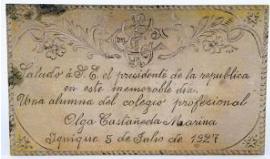 Saludo á S. E. el presidente de la republica
en este memorable día.
Una alumna del colegio profesional
Olga Castañeda Marina
Iquique 5 de Julio de 1927